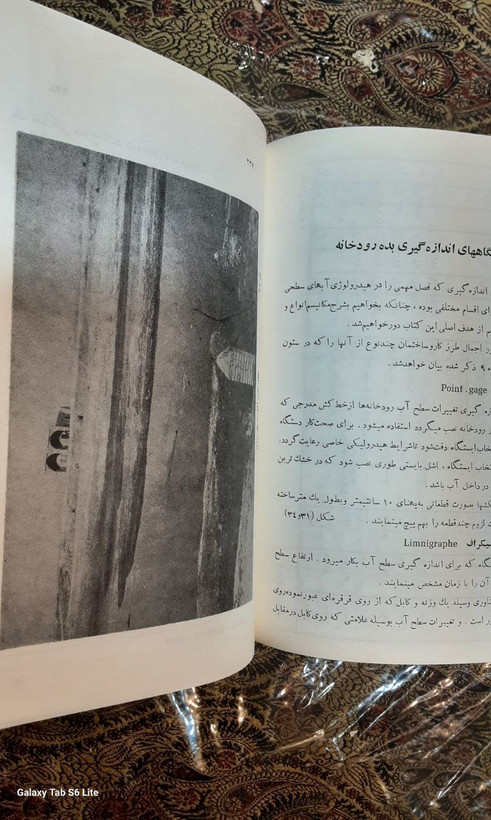 اندازه‌گیری بده رودخانه
اندازه گیری که فصل مهمی را در هیدرولوژی آبهای سطحی
ای اقسام مختلفی بوده ، چنانکه بخواهیم بشرح مکانیسم انواع و
م از هدف اصلی این کتاب دور خواهیم شد .
ر اجمال طرز کار و ساختمان چند نوع از آنها را که در ستون
۹ ذکر شده بیان خواهد شد .
Point . gage
گیری تغییرات سطح آب رودخانه‌ها از خط کش مدرجی که
رودخانه نصب میگردد استفاده میشود . برای صحت کار دستگاه
ایستگاه دقت شود تا شرایط هیدرولیکی خاصی رعایت گردد.
ایستگاه ، اشل بایستی طوری نصب شود که در خشك ترین
در داخل آب باشد .
بصورت قطعاتی به پهنای ۱۰ سانتیمتر و بطول یك متر ساخته
لزوم چند قطعه را بهم پیچ مینمایند . شکل (۳۱و۳۴)
Limnigraphe
گاه که برای اندازه گیری سطح آب بکار میرود . ارتفاع سطح
آن را با زمان مشخص مینمایند .
وسیله یك وزنه و کابل که از روی قرقره‌ای عبور نموده روی
است . و تغییرات سطح آب بوسیله علامتی که روی کابل در مقابل
Galaxy Tab S6 Lite